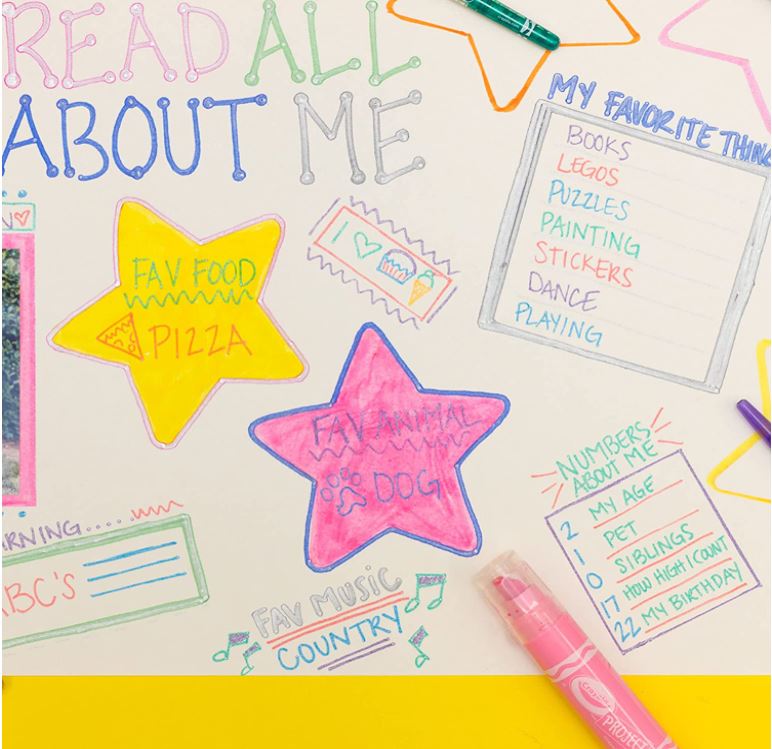 READ ALL
ABOUT ME
FAV FOOD
PIZZA
I
MY FAVORITE
BOOKS
LEGOS
PUZZLES
PAINTING
STICKERS
DANCE
PLAYING
FAV ANIMAL
DOG
NUMBERS
ABOUT ME
2 MY AGE
1 PET
0 SIBLINGS
17 HOW HIGH I COUNT
22 MY BIRTHDAY
ABC'S
FAV MUSIC
COUNTRY
Crayola